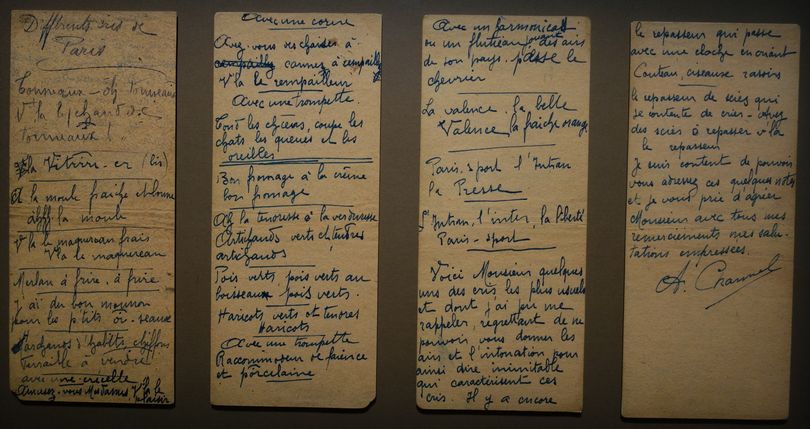 Différents cris de
Paris
Tonneaux - ch tonneaux
V'la l'chand de
tonneaux !
V'la Vitrii - er (bis)
A la moule fraiche et bonne
à la moule
V'la le maquereau frais
V'la le maquereau
Merlan à frire, à frire
J'ai du bon mouron
pour les p'tits oi-seaux
Marchand d'habits, chiffons
Ferraille à vendre
avec une crécelle
Amusez-vous Mesdames, V'la le
plaisir
Avec une corne
Avez vous des chaises à
cannes à rempailler
V'la le rempailleur
Avec une trompette
Tont les chiens, coupe les
chats les queues et les
oreilles
Bon fromage à la crème
bon fromage
Ah la tendresse à la verduresse
Artichauds verts et tendres
artichauds
Pois verts, pois verts au
boisseau pois verts.
Haricots verts et tendres
Haricots
Avec une trompette
Raccommodeur de faience
et porcelaine
Avec un harmonica
ou un fluteau jouant des airs
de son pays. passe le
chevrier
La valence la belle
Valence la fraiche orange
Paris-sport l'Intran
la Presse
L'Intran, l'inter, la liberté
Paris-sport
Voici Monsieur quelques
uns des cris les plus usuels
et dont j'ai pu me
rappeler, regrettant de ne
pouvoir vous donner les
airs et l'intonation pour
ainsi dire inimitable
qui caractérisent ces
cris. Il y a encore
le repasseur qui passe
avec une cloche en criant
Couteau, ciseaux rasoirs
le repasseur de scies qui
se contente de crier - Avez
des scies à repasser v'là
le repasseur
Je suis content de pouvoir
vous adressez ces quelques notes
et je vous prie d'agréer
Monsieur avec tous mes
remerciements mes salu-
tations empressées.
A.